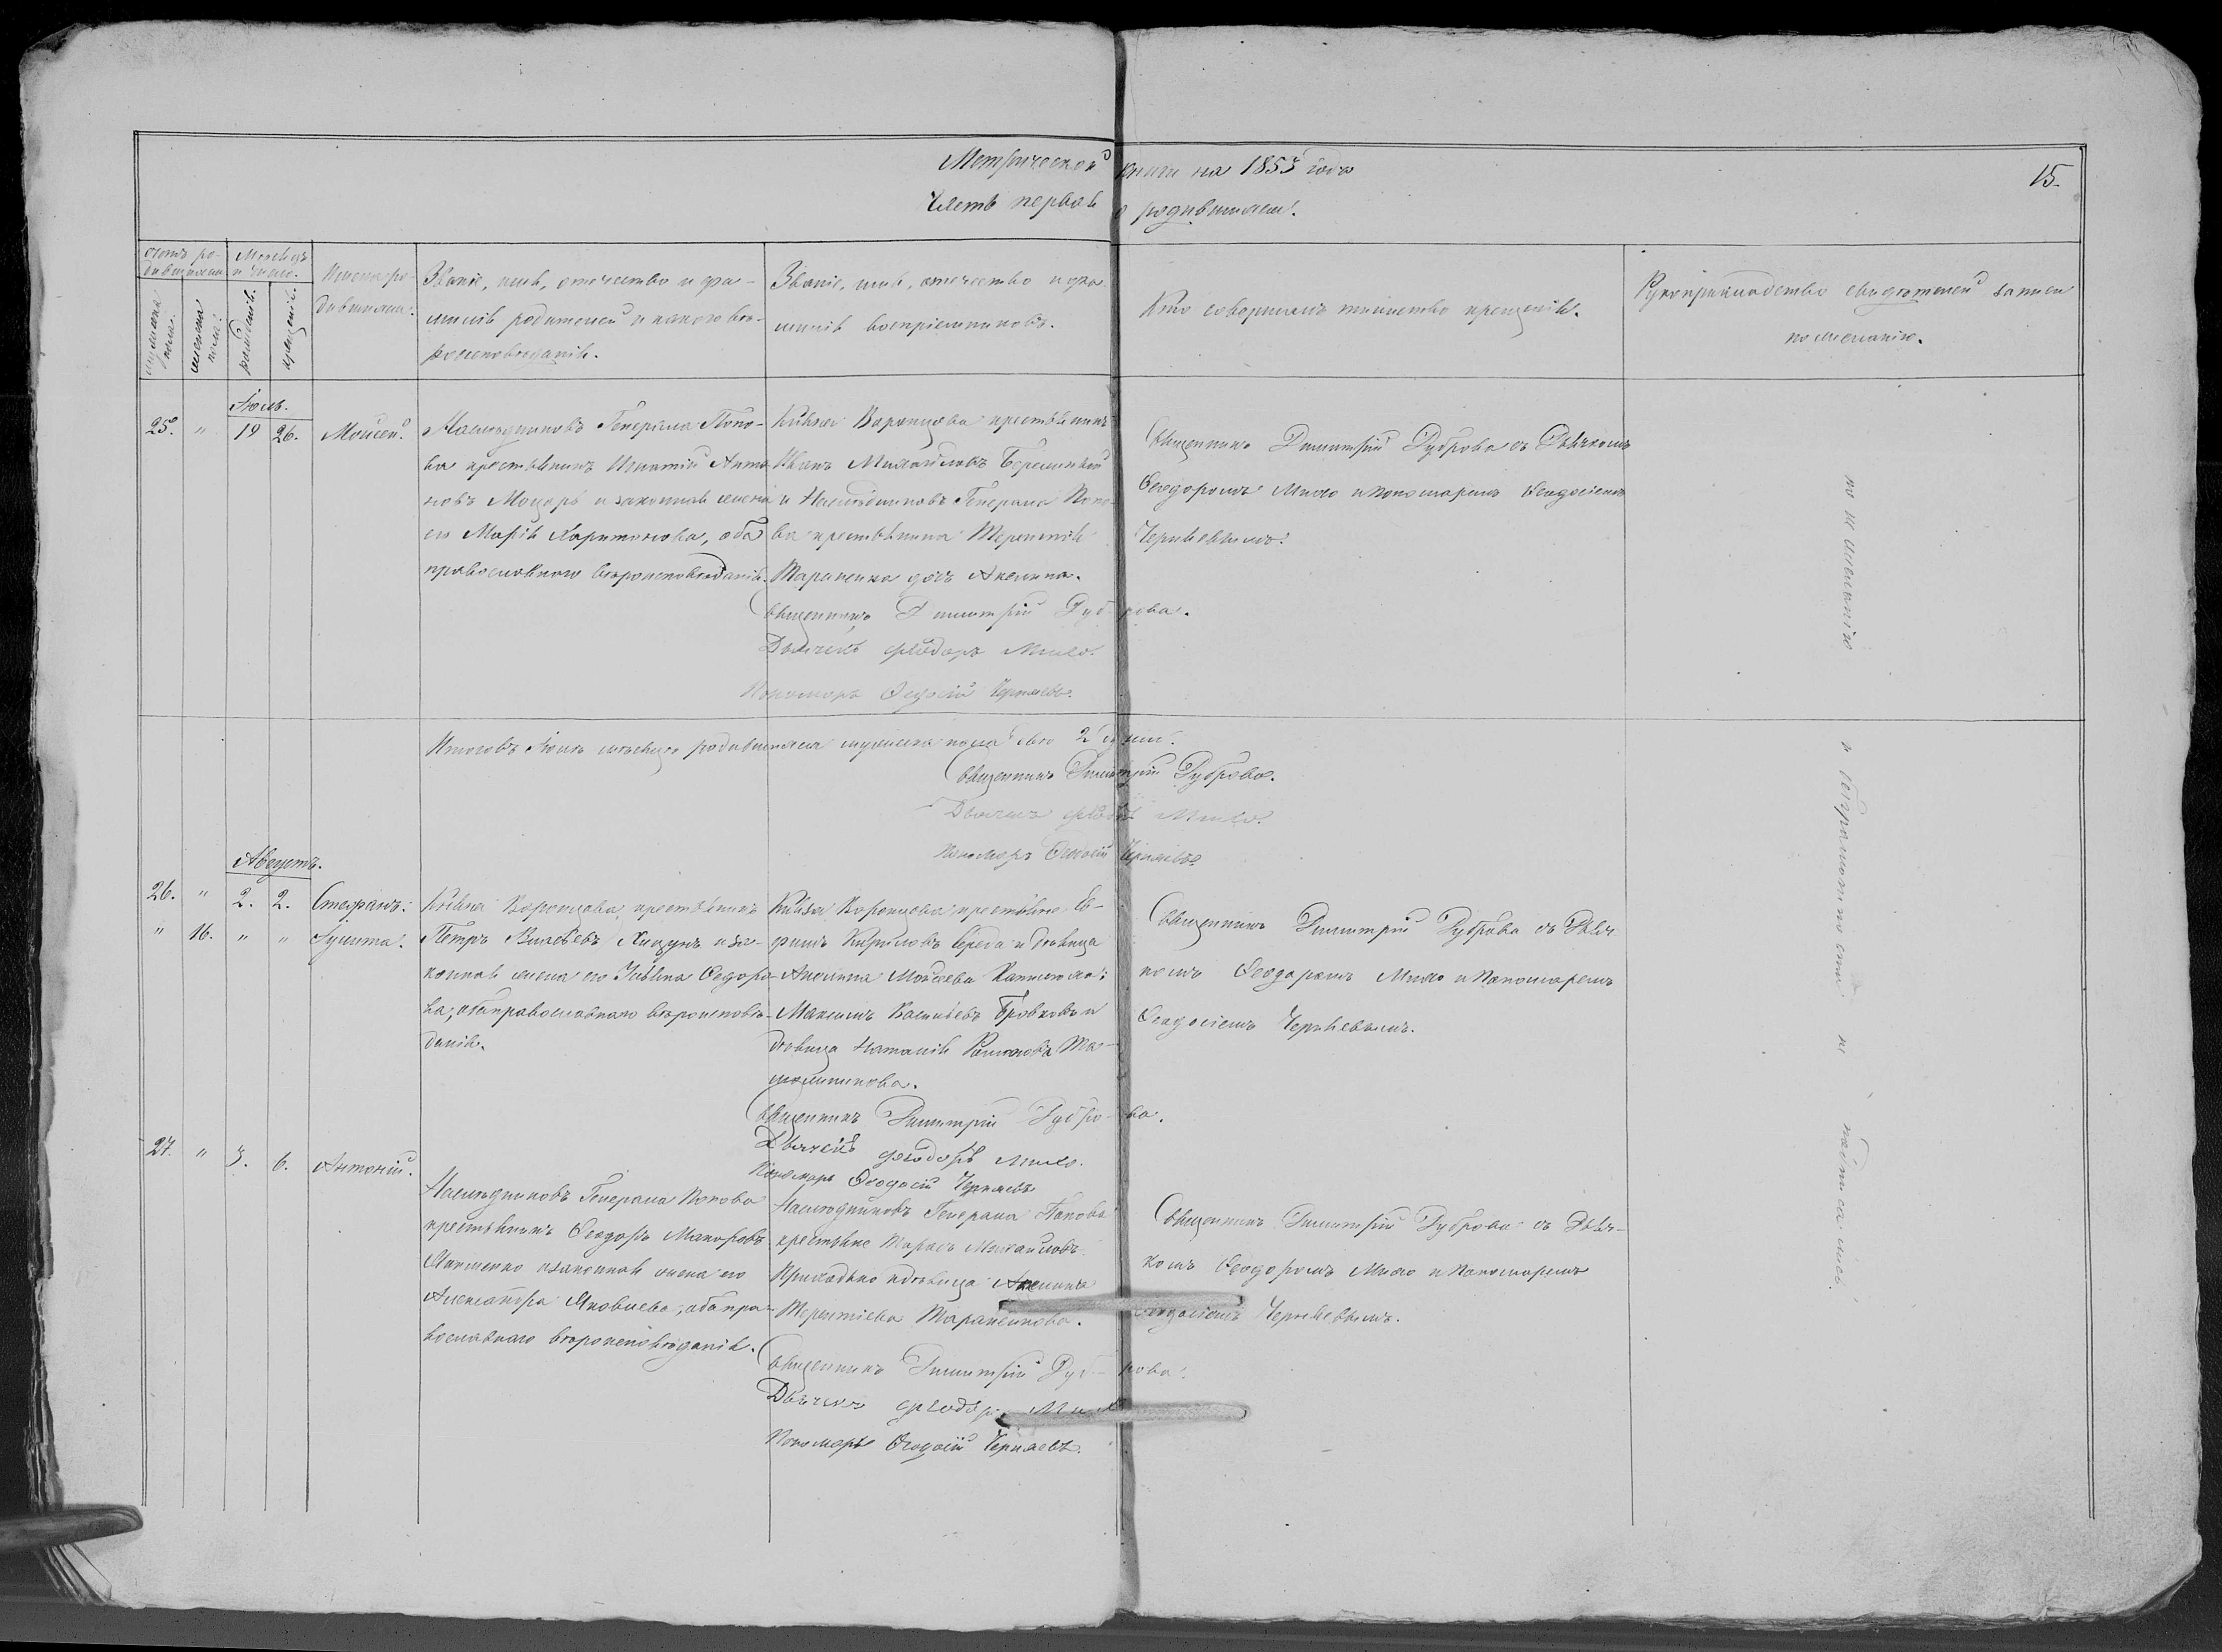 Метрической книги на 1853 года
15.
Часть первая о родившихся.
счетъ ро-
дившихся
мужеска пола.
женска пола.
Месяцъ
и число.
рожденія.
крещенія.
Имена ро-
дившихся.
Званіе, имя, отечество и фа-
милія родителей и какого веро-
роисповѣданія.
Званіе, имя, отечество и фа-
милія воспріемниковъ.
Кто совершалъ таинство крещенія.
Рукоприкладство свидѣтелей записи
по желанію.
Іюль.
25. " 19 26. Моисей.
Наслѣдниковъ Генерала Попо-
ва крестьянинъ Игнатій Анто
новъ Моцарь и законная жена
его Марія Харитонова, оба
православнаго вѣроисповѣданія.
Князя Воронцова крестьянинъ
Иванъ Михайловъ
и Наслѣдниковъ Генерала Попо-
ва крестьянина Терентія
Тараненка дочь Акилина.
Священникъ Димитрій Дуброва съ Дьячкомъ
Ѳеодоромъ Михо и пономаремъ Ѳеодосіемъ
Чернявымъ.
Священникъ Димитрій Дуброва.
Дьячекъ Феодоръ Михо.
Пономарь Ѳеодосій Чернявъ.
Итого въ Іюлѣ месяцѣ родившихся мужеска пола 2 души.
Священникъ Димитрій Дуброва.
Дьячекъ Феодоръ Михо.
Пономарь Ѳеодосій Чернявъ.
Августъ.
26. " 2. 2. Стефанъ.
" 16. " "
Князя Воронцова крестьянинъ
Петръ и за-
конная жена его Ульяна Ѳедоро-
ва, оба православнаго вѣроисповѣ-
данія.
Князя Воронцова крестьяне Еф-
фимъ Кириловъ Середа и дѣвица
Акилина Моисеева
Максимъ Васильевъ Бровковъ и
дѣвица Наталія Та-
Священникъ Димитрій Дуброва съ Дьяч
комъ Ѳеодоромъ Михо и Пономаремъ
Ѳеодосіемъ Чернявымъ.
Священникъ Димитрій Дуброва.
Дьячекъ Феодоръ Михо.
Пономарь Ѳеодосій Чернявъ
27. " 3. 6. Антоній.
Наслѣдниковъ Генерала Попова
крестьянинъ Ѳеодоръ Макаровъ
и законная жена его
Александра Яковлева, оба пра-
вославнаго вѣроисповѣданія.
Наслѣдниковъ Генерала Попова
крестьяне Тарасъ Михайловъ
Приходько и дѣвица Акилина
Терентіева Тараненкова.
Священникъ Димитрій Дуброва съ Дьяч-
комъ Ѳеодоромъ Михо и Пономаремъ
Ѳеодосіемъ Чернявымъ.
Священникъ Димитрій Дуброва.
Дьячекъ Феодоръ Михо
Пономарь Ѳеодосій Чернявъ.
по не желанію и безграмотности не подписались.